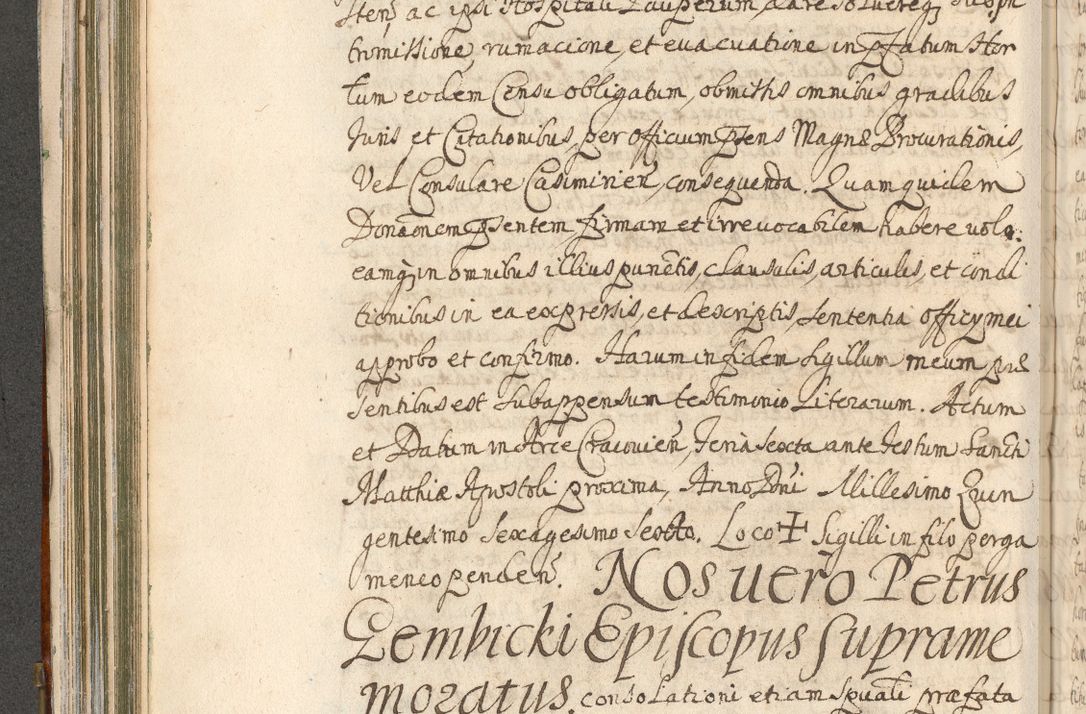 sten̄ ac ipsi Hospitali Pauperum, dare solvereqȝ
tromissione, rumacione, et evacuatione in pfatum Hor
tum eodem Censu obligatum, obmissis omnibus gradibus
Juris et Citationibus, per officium psens Magnæ Procurationis,
Vel Consulare Casimirien̄, consequenda. Quam quidem
Donāonem psentem firmam et irrevocabilem habere volo:
eamqȝ in omnibus illius punctis, clausulis, articulis, et condi
tionibus in ea expressis, et descriptis, sententia officij mei
approbo et confirmo. Harum in fidem sigillum meum præ
sentibus est subappensum testimonio Literarum. Actum
et Datum in Arce Cracovien̄, Feria sexta ante Festum Sancti
Matthiæ Apostoli proxima, Anno Dn̄i Millesimo Quin
gentesimo sexagesimo sexto. Loco ✝ Sigilli in filo perga
meneo penden̄. Nos vero Petrus
Gembicki Episcopus suprame
moratus, consolationi etiam spūali præfata